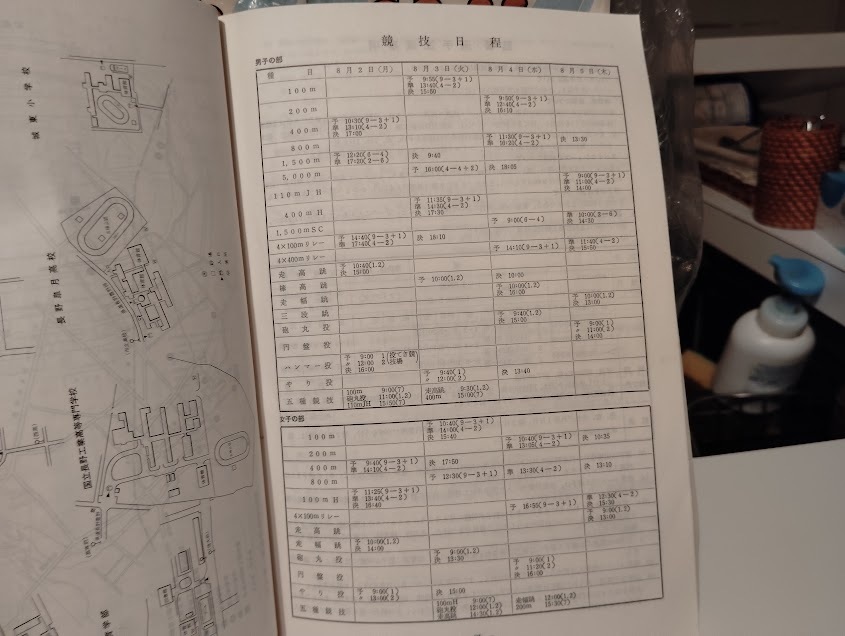 城東小学校
長野皐月高校
国立長野工業高等専門学校
競技日程
男子の部
種目 8月2日(月) 8月3日(火) 8月4日(水) 8月5日(木)
100m 予 9:55(9−3+1) 準 13:40(4−2) 決 15:50
200m 予 9:50(9−3+1) 準 12:40(4−2) 決 16:10
400m 予 10:30(9−3+1) 準 13:10(4−2) 決 17:00
800m 予 11:30(9−3+1) 準 16:20(4−2) 決 13:30
1,500m 予 12:20(6−4) 準 17:20(2−6) 決 9:40
5,000m 予 16:00(4−4+2) 決 18:05
110mJH 予 9:00(9−3+1) 準 11:00(4−2) 決 14:00
400mH 予 11:35(9−3+1) 準 14:30(4−2) 決 17:30
1,500mSC 予 9:00(6−4) 準 10:00(2−6) 決 14:30
4×100mリレー 予 14:40(9−3+1) 準 17:40(4−2) 決 18:10
4×400mリレー 予 14:10(9−3+1) 準 11:40(4−2) 決 15:50
走高跳 予 10:40(1,2) 決 15:00
棒高跳 予 10:00(1,2) 決 10:00
走幅跳 予 10:00(1,2) 決 16:00
三段跳 予 10:00(1,2) 決 13:00
砲丸投 予 9:40(1,2) 決 15:00
円盤投 予 9:00(1) 〃 11:00(2) 決 14:00
ハンマー投 予 9:00 1 〃 12:00 2 決 16:00
やり投 予 9:40(1) 〃 12:00(2) 決 13:40
五種競技 100m 9:00(7) 砲丸投 11:00(1,2) 110mJH 15:50(7) 走高跳 9:30(1,2) 400m 15:00(7)
女子の部
100m 予 10:40(9−3+1) 準 14:00(4−2) 決 15:40
200m 予 10:40(9−3+1) 準 15:05(4−2) 決 10:35
400m 予 9:40(9−3+1) 準 14:10(4−2) 決 17:50
800m 予 12:30(9−3+1) 準 13:30(4−2) 決 13:10
100mH 予 11:25(9−3+1) 準 13:40(4−2) 決 16:40
4×100mリレー 予 16:55(9−3+1) 準 12:30(4−2) 決 15:30
走高跳 予 9:00(1,2) 決 13:00
走幅跳 予 10:00(1,2) 決 14:00
砲丸投 予 9:00(1,2) 決 13:30
円盤投 予 9:00(1) 〃 11:20(2) 決 16:00
やり投 予 9:00(1) 〃 13:00(2) 決 15:00
五種競技 100mH 9:00(7) 砲丸投 12:00(1,2) 走高跳 14:30(1,2) 走幅跳 12:00(1,2) 200m 15:30(7)